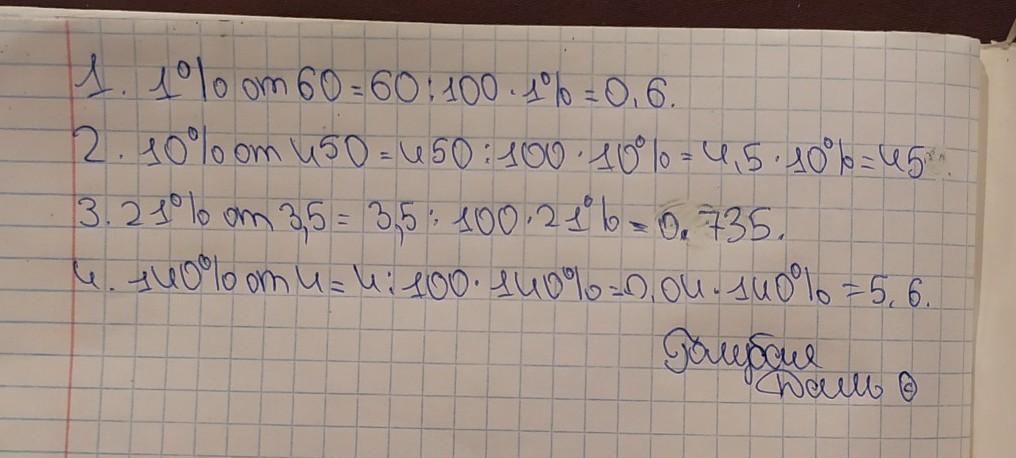 1. 1% от 60 = 60 : 100 · 1% = 0,6.
2. 10% от 450 = 450 : 100 · 10% = 4,5 · 10% = 45.
3. 21% от 3,5 = 3,5 : 100 · 21% = 0.735.
4. 140% от 4 = 4 : 100 · 140% = 0,04 · 140% = 5,6.
Голубая
Даль